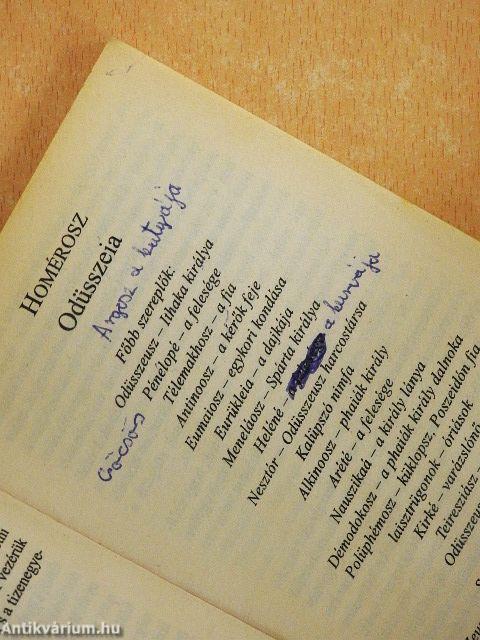 HOMÉROSZ
Odüsszeia
Argosz a kutyája
Főbb szereplők:
Odüsszeusz – Ithaka királya
Csöcsös Pénelopé – a felesége
Télemakhosz – a fia
Antinoosz – a kérők feje
Eumaiosz – egykori kondása
Eurükleia – a dajkája
Menelaosz – Spárta királya
Helené – a kurvája
Nesztór – Odüsszeusz harcostársa
Kalüpszó nimfa
Alkinoosz – phaiák király
Arété – a felesége
Nauszikaá – a király lánya
Démodokosz – a phaiák király dalnoka
Polüphémosz – küklopsz, Poszeidón fia
laisztrügonok – óriások
Kirké – varázslónő
Teiresziász –
Odüsszeusz
vezérük
s a tizenegye-
Antikvárium.hu